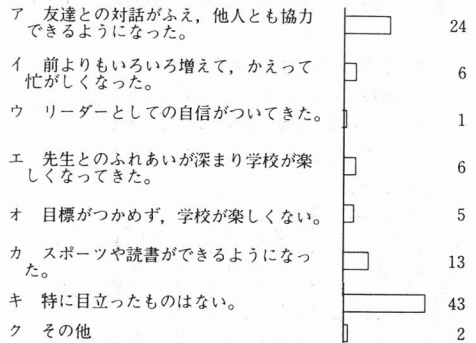 ア 友達との対話がふえ，他人とも協力
できるようになった。
24
イ 前よりもいろいろ増えて，かえって
忙がしくなった。
6
ウ リーダーとしての自信がついてきた。
1
エ 先生とのふれあいが深まり学校が楽
しくなってきた。
6
オ 目標がつかめず，学校が楽しくない。
5
カ スポーツや読書ができるようになっ
た。
13
キ 特に目立ったものはない。
43
ク その他
2